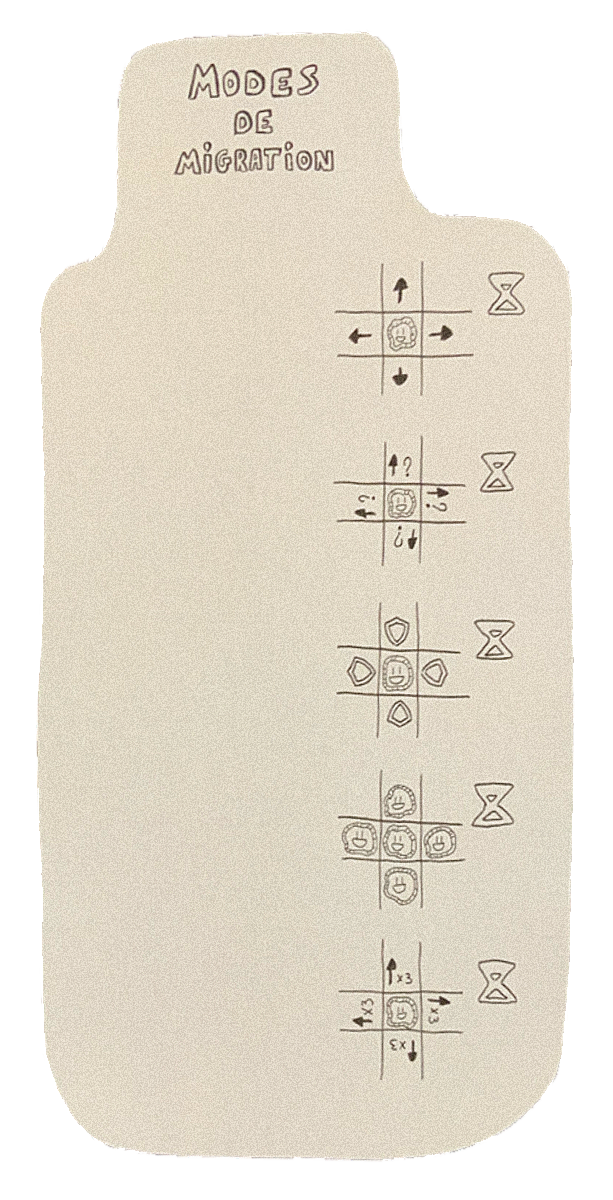 MODES
DE
MiGRATiON
?
? ?
?
x3
x3 x3
x3